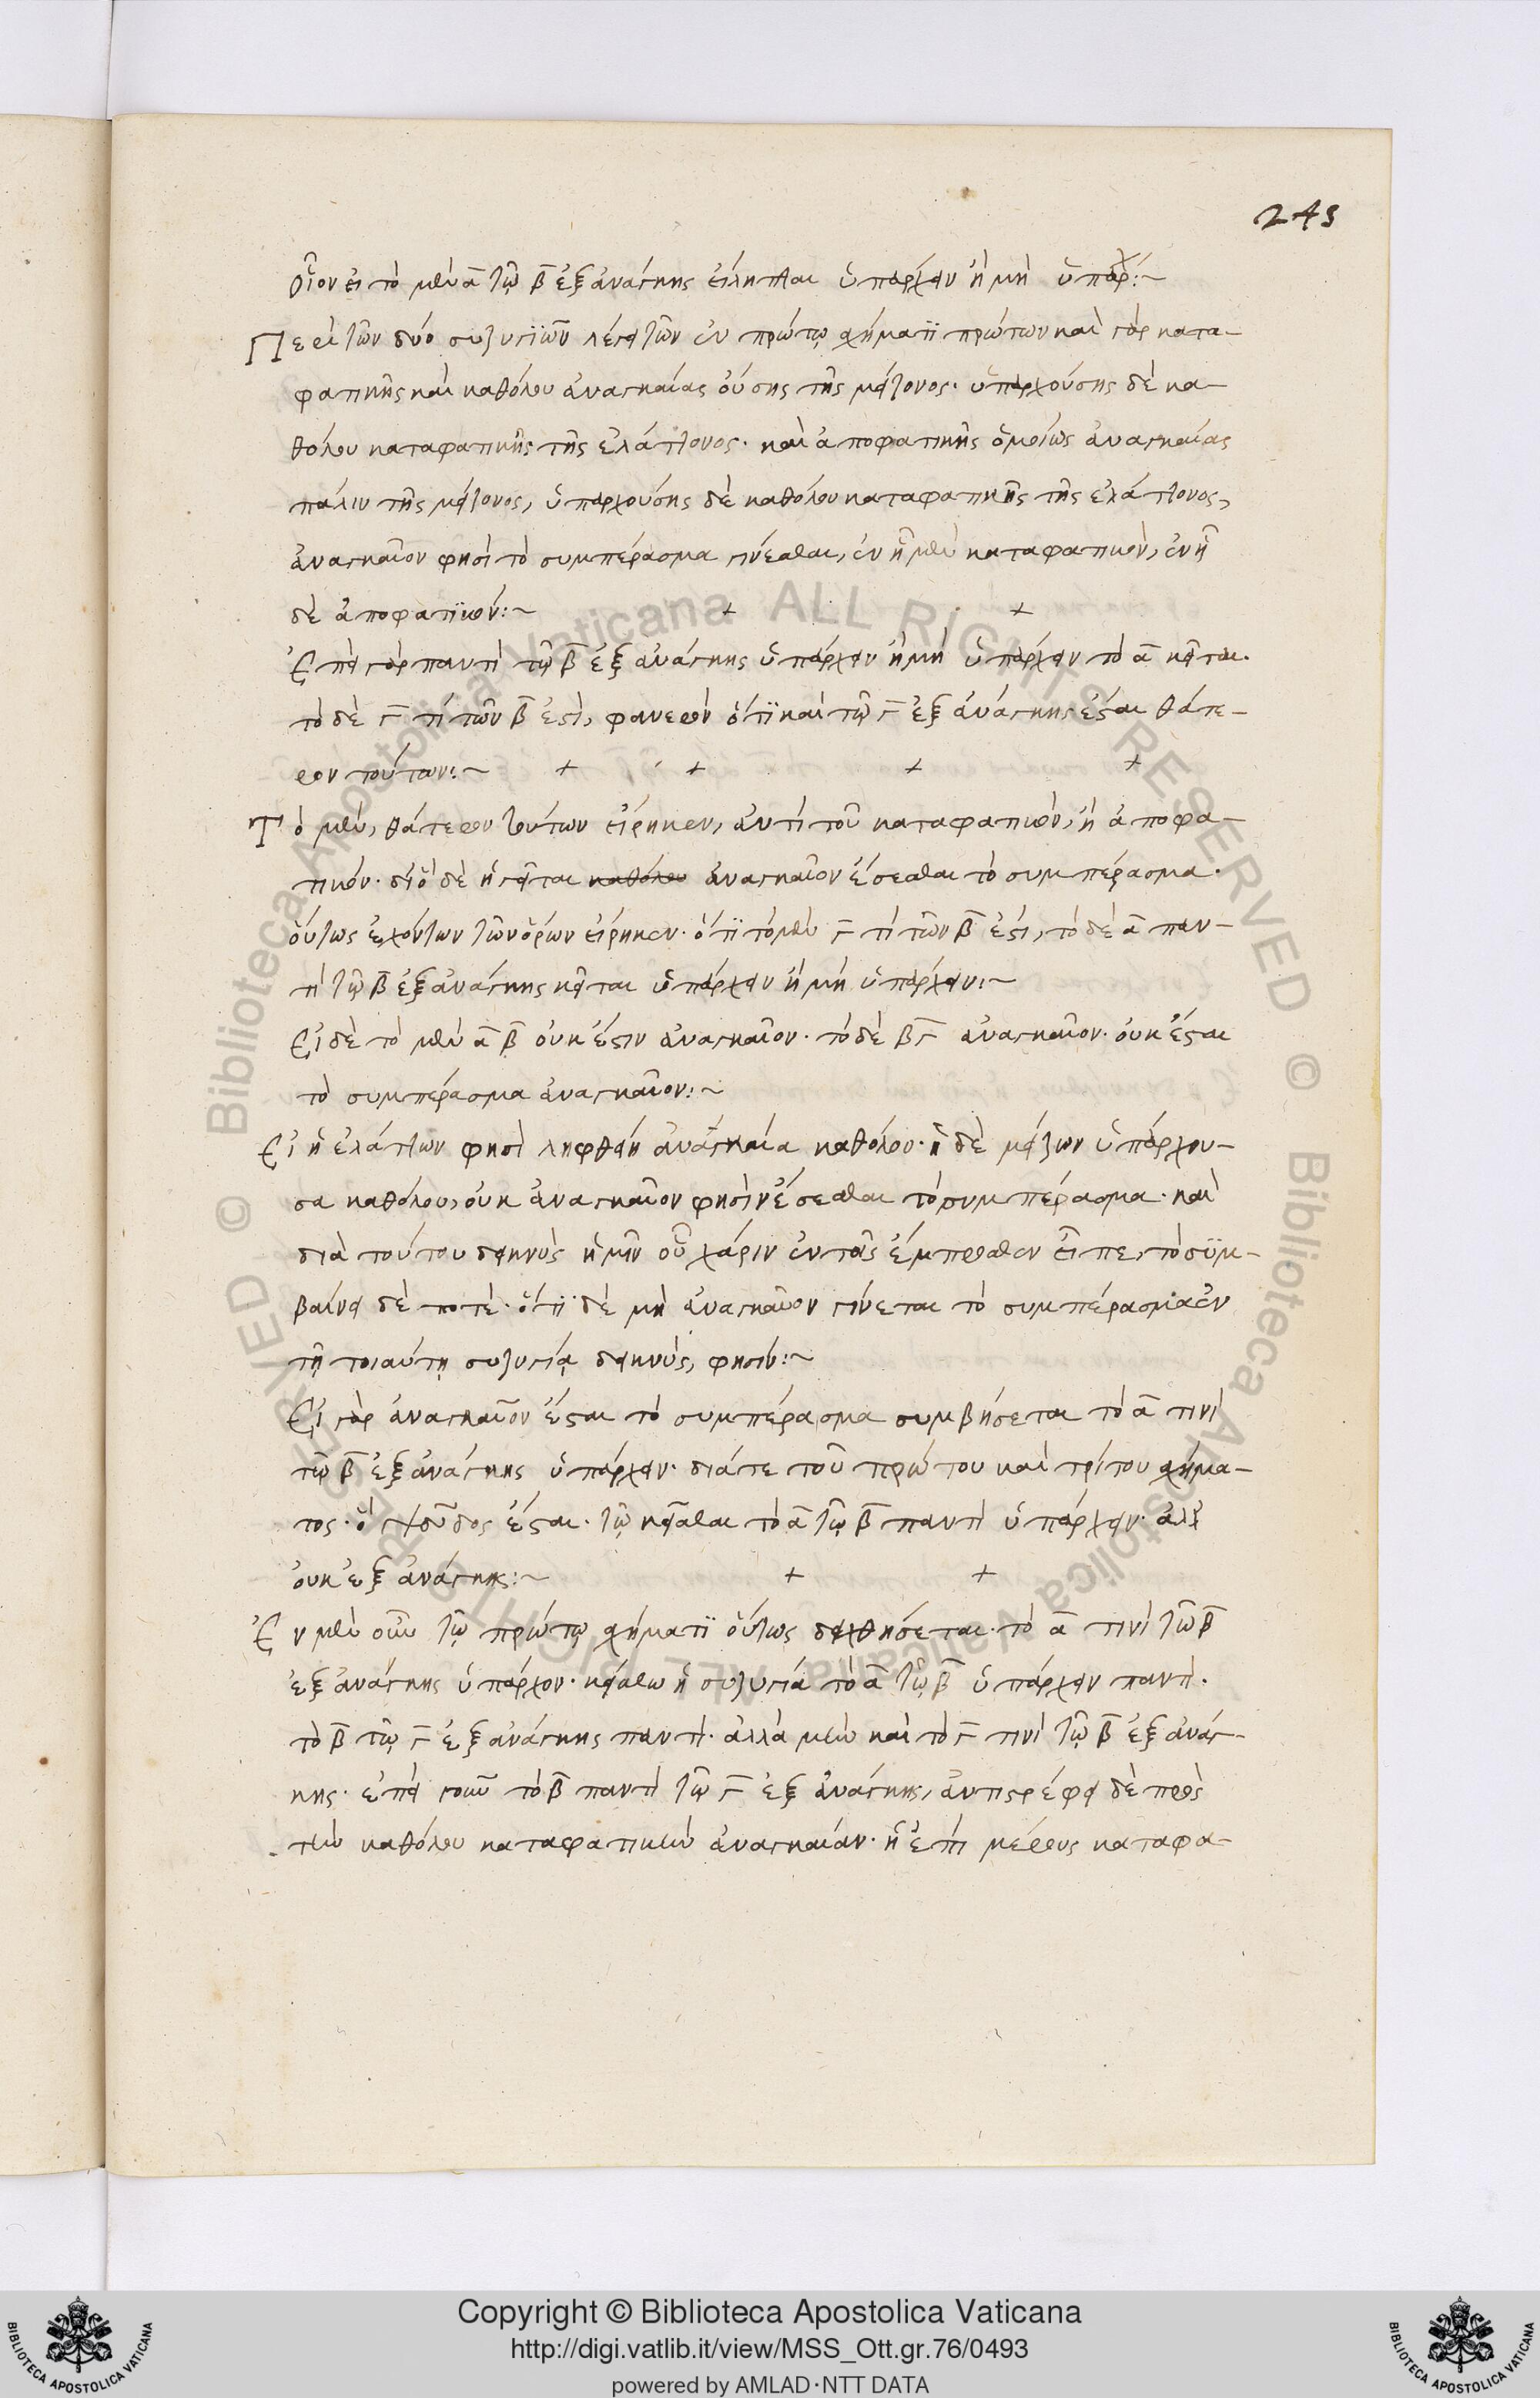 243
οἷον εἰ τὸ μὲν α̅ τῷ β̅ ἐξ ἀνάγκης εἴληπται ὑπάρχειν ἢ μὴ ὑπάρχ:~
Περὶ τῶν δύο συζυγιῶν λέγει τῶν ἐν πρώτῳ σχήματϊ πρώτων καὶ γὰρ κατα-
φατικῆς καὶ καθόλου ἀναγκαίας οὔσης τῆς μείζονος· ὑπαρχούσης δὲ κα-
θόλου καταφατικῆς τῆς ἐλάττονος· καὶ ἀποφατικῆς ὁμοίως ἀναγκαίας
πάλιν τῆς μείζονος, ὑπαρχούσης δὲ καθόλου καταφατικῆς τῆς ἐλάττονος,
ἀναγκαῖον φησὶ τὸ συμπέρασμα γίνεσθαι, ἐν ᾗ μὲν καταφατικὸν, ἐν ᾗ
δὲ ἀποφατϊκόν:~ + +
Ἐπεὶ γὰρ παντὶ τῷ β̅ ἐξ ἀνάγκης ὑπάρχειν ἢ μὴ ὑπάρχειν τὸ α̅ κεῖται.
τὸ δὲ γ̅ τί τῶν β̅ ἐστὶ, φανερὸν ὅτϊ καὶ τῷ γ̅ ἐξ ἀνάγκης ἔσται θάτε-
ρον τούτων:~ + + + +
Τὸ μὲν, θάτερον τούτων εἴρηκεν, ἀντὶ τοῦ καταφατικὸν, ἢ ἀποφα-
τικόν· δι' ὃ δὲ ἡγεῖται καθόλου ἀναγκαῖον ἔσεσθαι τὸ συμπέρασμα.
οὕτως ἐχόντων τῶν ὅρων εἴρηκεν· ὅτϊ τὸ μὲν γ̅ τί τῶν β̅ ἐστι, τὸ δὲ α̅ παν-
τὶ τῷ β̅ ἐξ ἀνάγκης κεῖται ὑπάρχειν ἢ μὴ ὑπάρχειν:~
Εἰ δὲ τὸ μὲν α̅ β̅ οὐκ ἔστιν ἀναγκαῖον· τὸ δὲ β γ̅ ἀναγκαῖον· οὐκ ἔσται
τὸ συμπέρασμα ἀναγκαῖον:~
Εἰ ἡ ἐλάττων φησὶ ληφθείη ἀναγκαία καθόλου· ἡ δὲ μείζων ὑπάρχου-
σα καθόλου, οὐκ ἀναγκαῖον φησὶν ἔσεσθαι τὸ συμπέρασμα· καὶ
διὰ τούτου δεικνὺς ἡμῖν οὗ χάριν ἐν τοῖς ἔμπροσθεν εἶπε, τὸ σϋμ-
βαίνει δὲ ποτὲ· ὅτϊ δὲ μὴ ἀναγκαῖον γίνεται τὸ συμπέρασμα ἐν
τῇ τοιαύτῃ συζυγίᾳ δεικνὺς, φησίν:~
Εἰ γὰρ ἀναγκαῖον ἔσται τὸ συμπέρασμα συμβήσεται τὸ α̅ τινὶ
τῷ β̅ ἐξ ἀνάγκης ὑπάρχειν· διά τε τοῦ πρώτου καὶ τρίτου σχήμα-
τος· ὃ ψεῦδος ἔσται· τῷ κεῖσθαι τὸ α̅ τῷ β̅ παντὶ ὑπάρχειν· ἀλλ'
οὐκ ἐξ ἀνάγκης:~ + +
Ἐν μὲν οὖν τῷ πρώτῳ σχήματϊ οὕτως δειχθήσεται· τὸ α̅ τινὶ τῷ β̅
ἐξ ἀνάγκης ὑπάρχον· κείσθω ἡ συζυγία τὸ α̅ τῷ β̅ ὑπάρχειν παντὶ.
τὸ β̅ τῷ γ̅ ἐξ ἀνάγκης παντὶ· ἀλλὰ μὴν καὶ τὸ γ̅ τινὶ τῷ β̅ ἐξ ἀνάγ-
κης· ἐπεὶ γοῦν τὸ β̅ παντὶ τῷ γ̅ ἐξ ἀνάγκης, ἀντιστρέφει δὲ πρὸς
τὴν καθόλου καταφατικὴν ἀναγκαίαν· ἡ ἐπὶ μέρους καταφα-
Copyright © Biblioteca Apostolica Vaticana
http://digi.vatlib.it/view/MSS_Ott.gr.76/0493
powered by AMLAD·NTT DATA